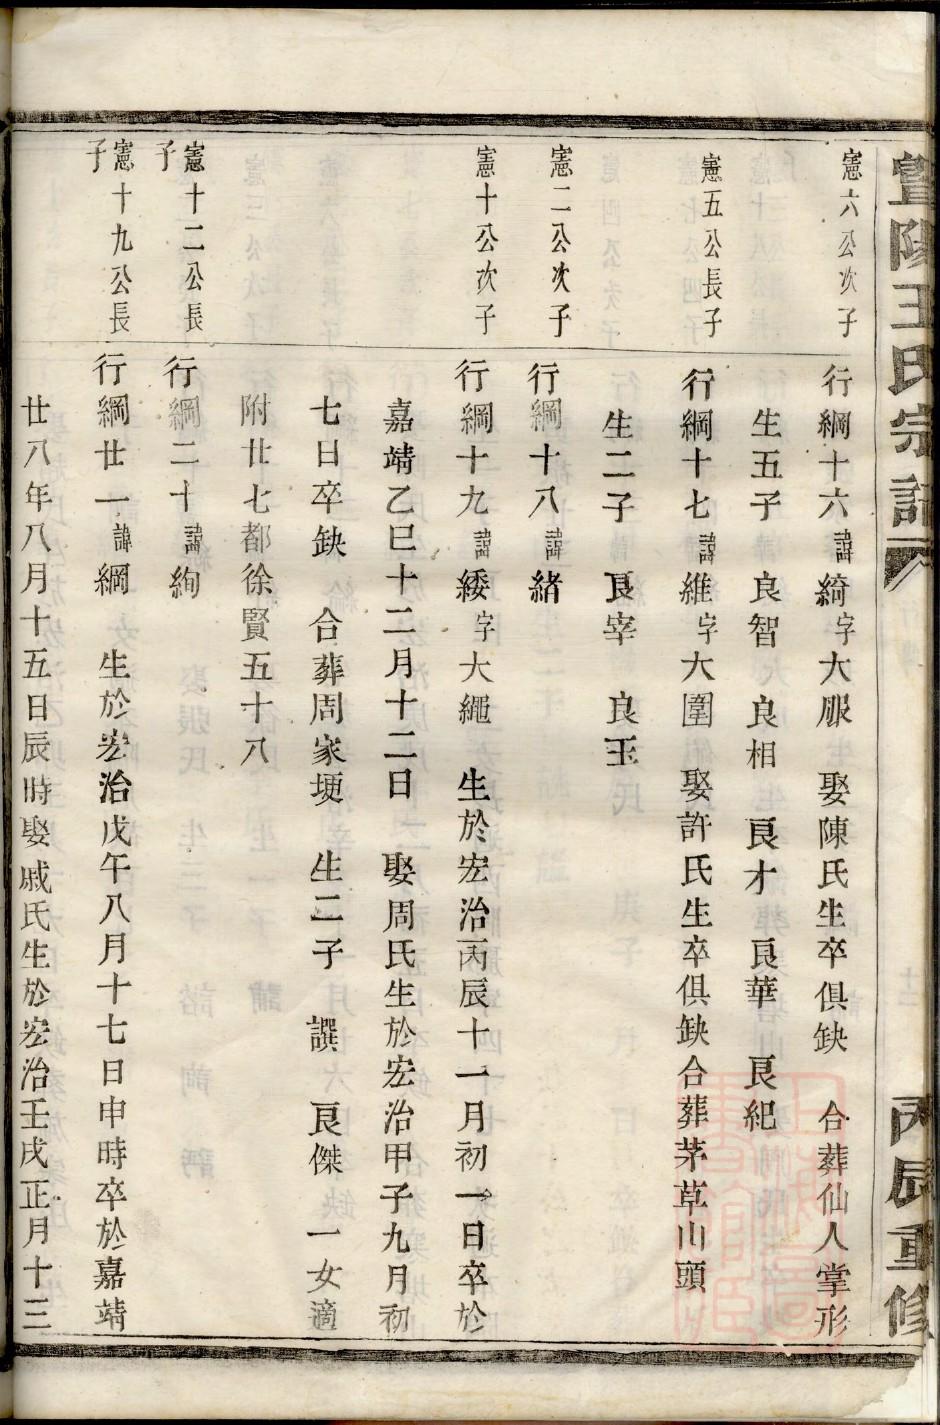 暨陽王氏宗譜
丙辰重修
憲六公次子
行綱十六諱綺字大服 娶陳氏生卒俱缺 合葬仙人掌形
生五子 良智 良相 良才 良華 良紀
憲五公長子
行綱十七諱維字大圍 娶許氏生卒俱缺合葬茅草山頭
生二子 良宰 良玉
憲二公次子
行綱十八諱緒
憲十公次子
行綱十九諱緌字大繩 生於宏治丙辰十一月初一日卒於
嘉靖乙巳十二月十二日 娶周氏生於宏治甲子九月初
七日卒缺 合葬周家埂 生二子 譔 良傑 一女適
附廿七都徐賢五十八
憲十二公長子
行綱二十諱絢
憲十九公長子
行綱廿一諱綱 生於宏治戊午八月十七日申時卒於嘉靖
廿八年八月十五日辰時娶戚氏生於宏治壬戌正月十三